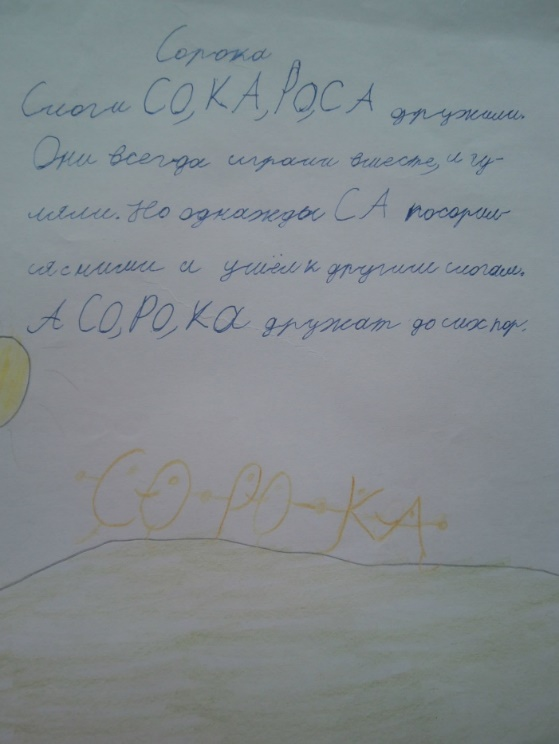 Сорока
Слоги СО, КА, РО, СА дружили.
Они всегда играли вместе, и гу-
ляли. Но однажды СА посорил-
ся с ними и ушёл к другим слогам.
А СО, РО, КА дружат до сих пор.
СО-РО-КА